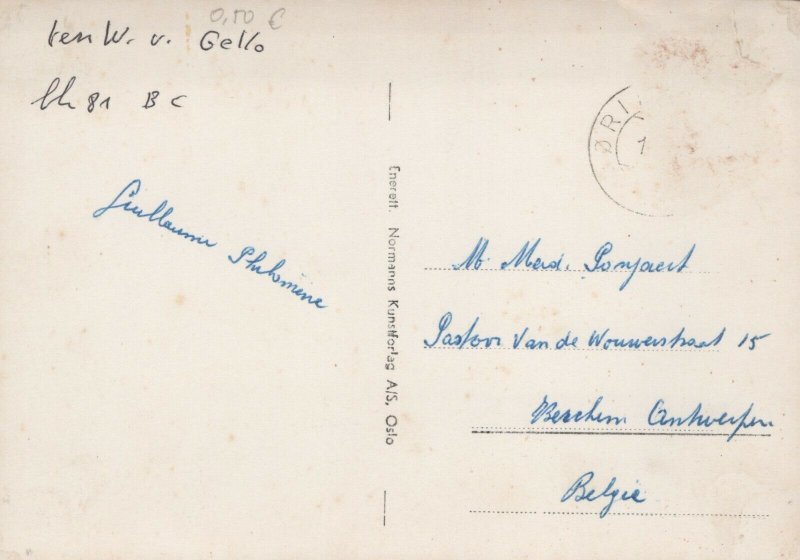 0,50 €
ten W. v. Gello
81 B C
Guillaume Philomène
Enerett. Normanns Kunstforlag A/S, Oslo
ØRI
1
M. Mad. Ponjaert
Pastoor Van de Wouwerstraat 15
Berchem Antwerpen
Belgie